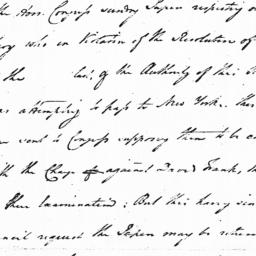 the Hon. Congress sundry Papers respecting
who in Violation of the Resolution of
the Law, of the Authority of this
as attempting to pass to New York. The
were sent to Congress supposing them to be
th the Charge against David Franks, th
their Examinations: But this having
uncil request the Papers may be return